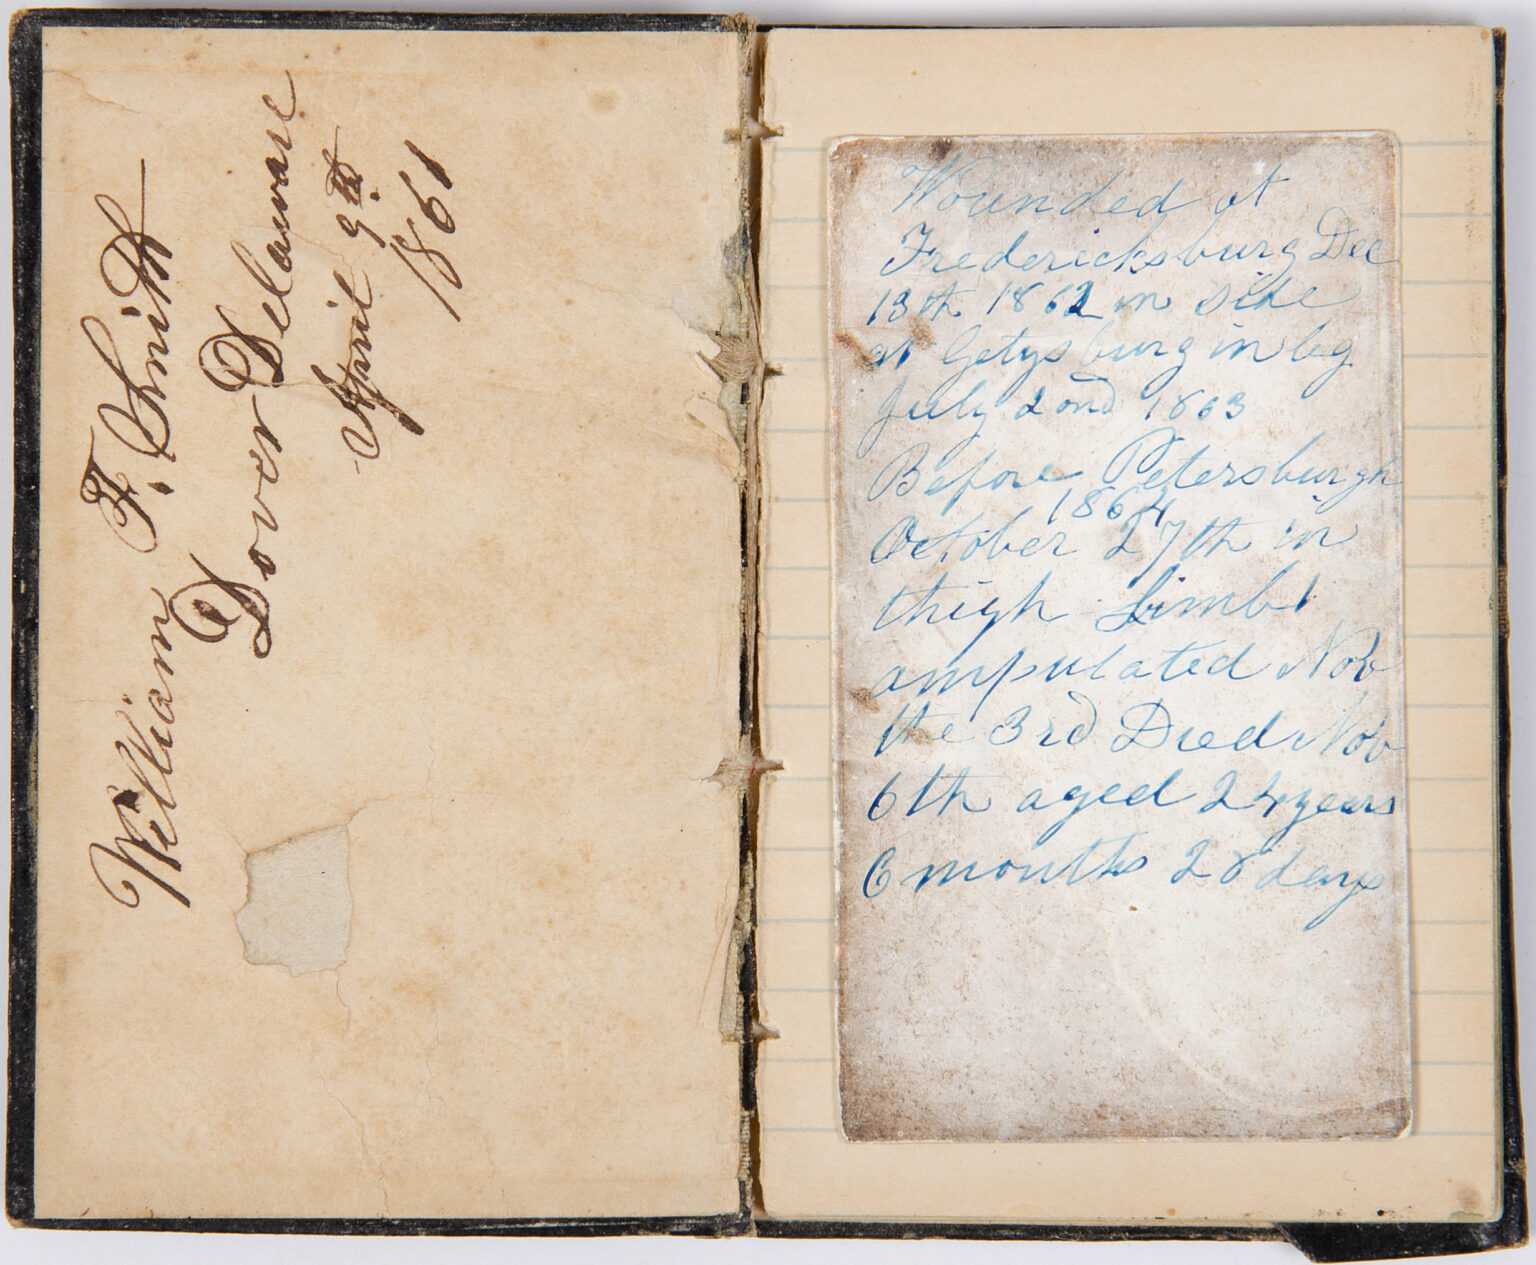 William F. Smith
Dover Delaware
April 9th
1861
Wounded at
Fredericksburg Dec
13th 1862 in side
at Getysburg in leg
July 2ond 1863
Before Petersburgh
1864
October 27th in
thigh Limb
ampulated Nov
the 3rd Died Nov
6th aged 24 years
6 months 28 days